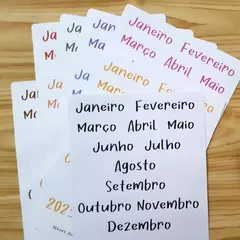 Janeiro Fevereiro
Março Abril Maio
Janeiro
Ma
Jane
Ma
Jan
Ma
Jan
202
Janeiro Fevereiro
Março Abril Maio
Junho Julho
Agosto
Setembro
Outubro Novembro
Dezembro